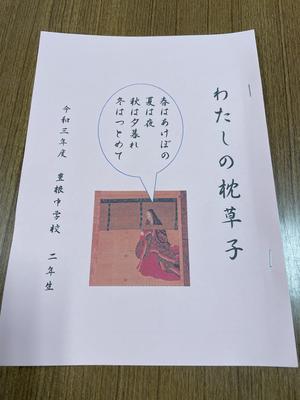 わたしの枕草子
春はあけぼの
夏は夜
秋は夕暮れ
冬はつとめて
令和三年度 豊根中学校 二年生